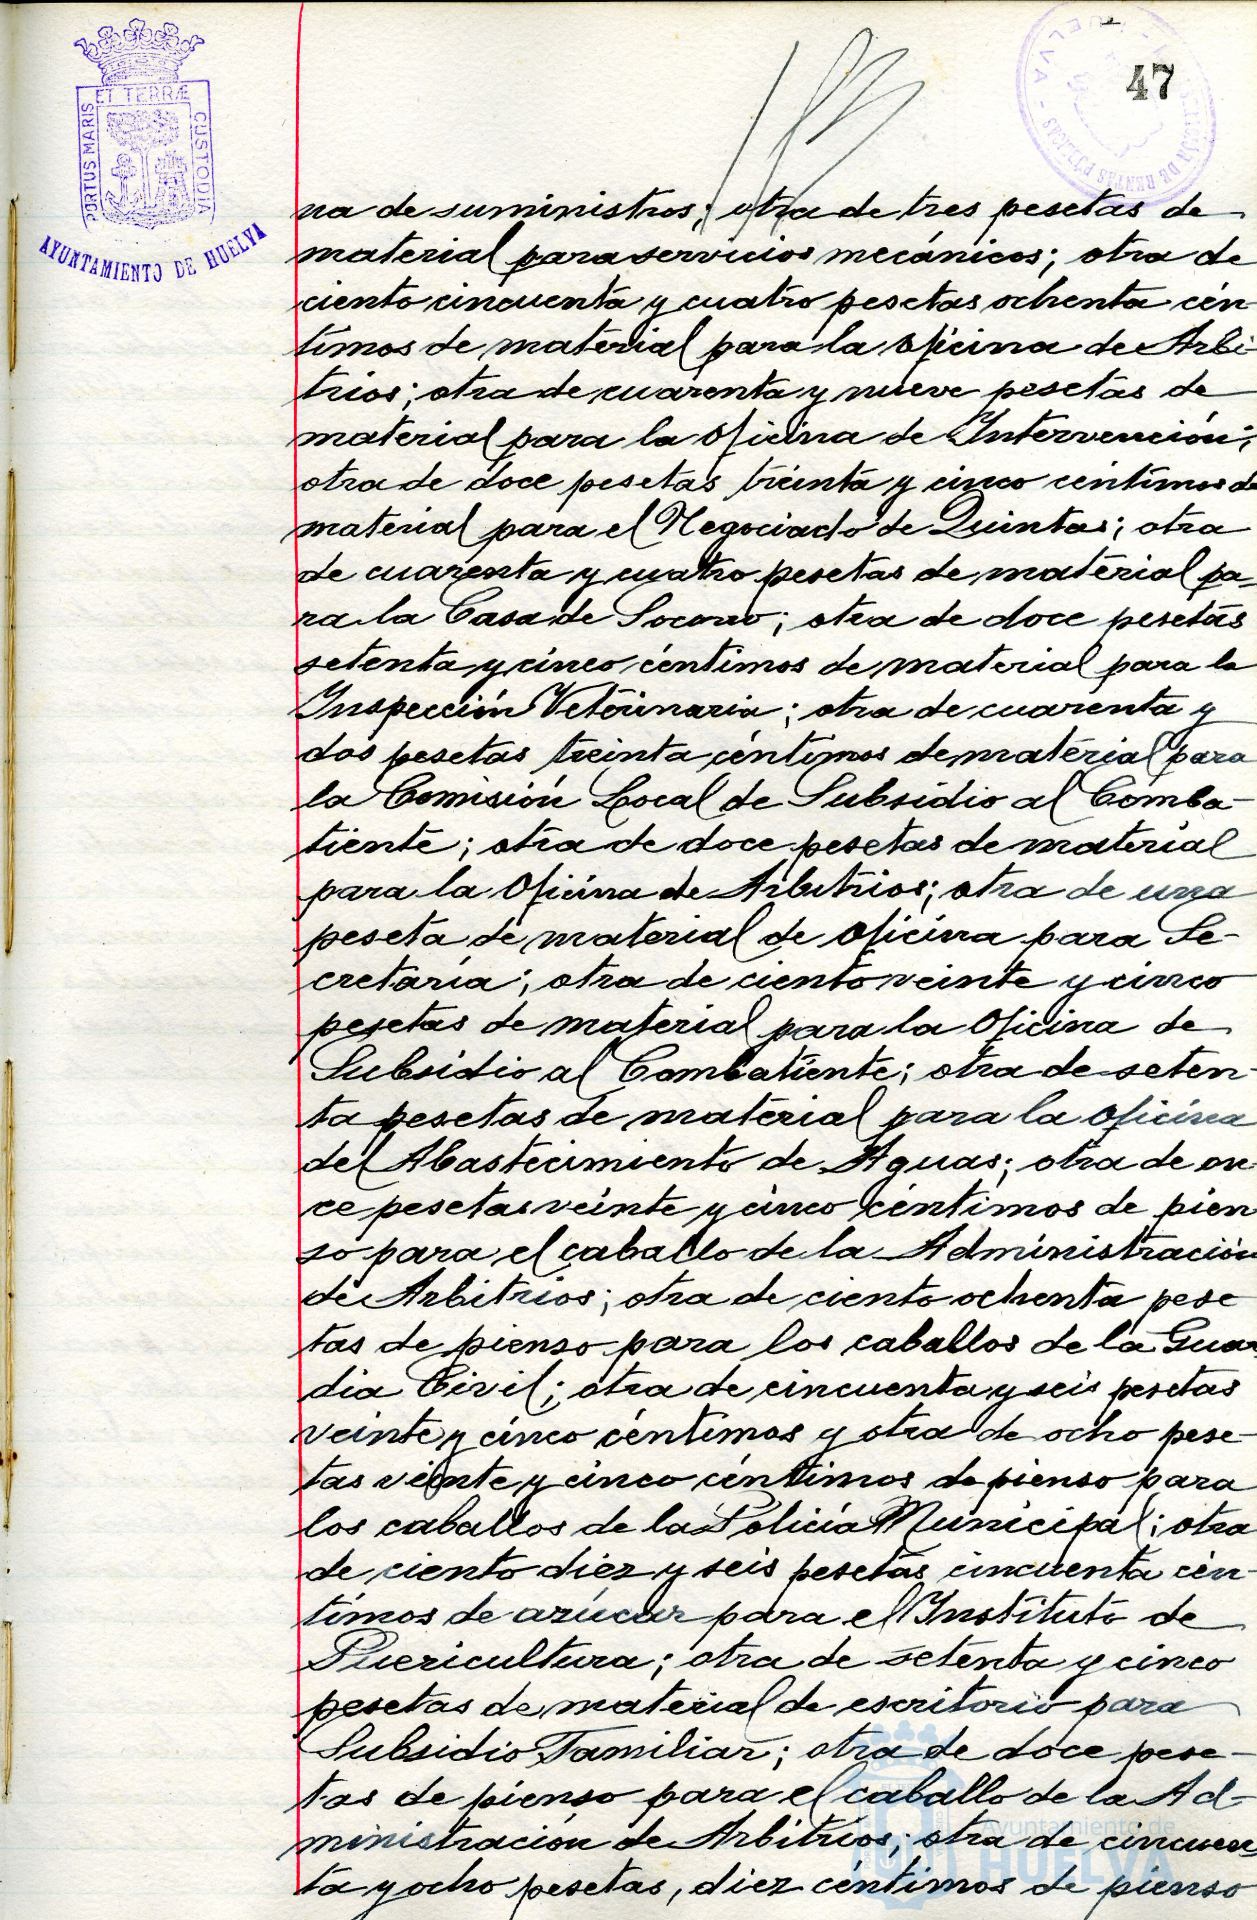 PORTUS MARIS ET TERRÆ CUSTODIA
AYUNTAMIENTO DE HUELVA
47
na de suministros; otra de tres pesetas de
material para servicios mecánicos; otra de
ciento cincuenta y cuatro pesetas ochenta cén-
timos de material para la oficina de Arbi-
trios; otra de cuarenta y nueve pesetas de
material para la oficina de Intervención;
otra de doce pesetas treinta y cinco centimos de
material para el Negociado de Quintas; otra
de cuarenta y cuatro pesetas de material pa-
ra la Casa de Socorro; otra de doce pesetas
setenta y cinco céntimos de material para la
Inspección Veterinaria; otra de cuarenta y
dos pesetas treinta céntimos de material para
la Comisión Local de Subsidio al Comba-
tiente; otra de doce pesetas de material
para la Oficina de Arbitrios; otra de una
peseta de material de oficina para Se-
cretaría; otra de ciento veinte y cinco
pesetas de material para la Oficina de
Subsidio al Combatiente; otra de seten-
ta pesetas de material para la oficina
del Abastecimiento de Aguas; otra de on-
ce pesetas veinte y cinco céntimos de pien
so para el caballo de la Administración
de Arbitrios; otra de ciento ochenta pese
tas de pienso para los caballos de la Guar
dia Civil; otra de cincuenta y seis pesetas
veinte y cinco céntimos y otra de ocho pese-
tas veinte y cinco céntimos de pienso para
los caballos de la Policía Municipal; otra
de ciento diez y seis pesetas cincuenta cén-
timos de azúcar para el Instituto de
Puericultura; otra de setenta y cinco
pesetas de material de escritorio para
Subsidio Familiar; otra de doce pese-
tas de pienso para el caballo de la Ad-
ministración de Arbitrios; otra de cincuen
ta y ocho pesetas, diez céntimos de pienso
Ayuntamiento de
HUELVA